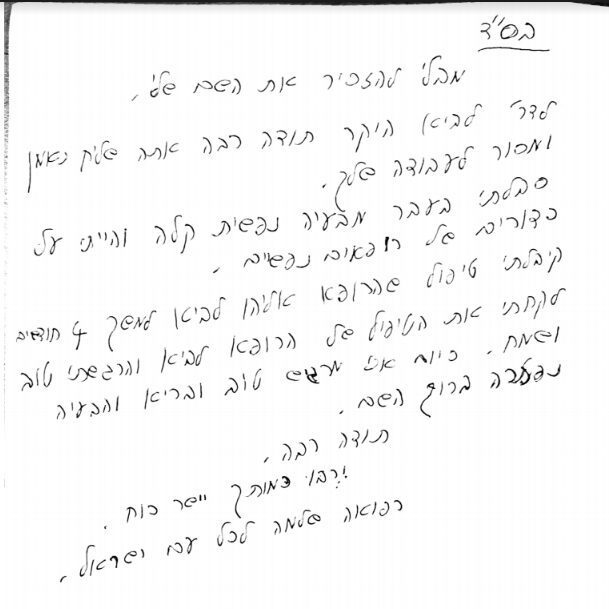 בס"ד
מבלי להזכיר את השם שלי.
לדר' לביא היקר תודה רבה אתה שליח נאמן
ומסור לעבודה שלך.
סבלתי בעבר מבעיה נפשית קלה והייתי על
כדורים של רופאים נפשיים.
קיבלתי טיפול שהרופא אליהו לביא למשך 4 חודשים
לקחתי את הטיפול של הרופא לביא והרגשתי טוב
ושמח. כיום אני מרגיש טוב ובריא והבעיה
נפתרה ברוך השם.
תודה רבה.
ירבו כמותך יישר כוח.
רפואה שלמה לכל עם ישראל.